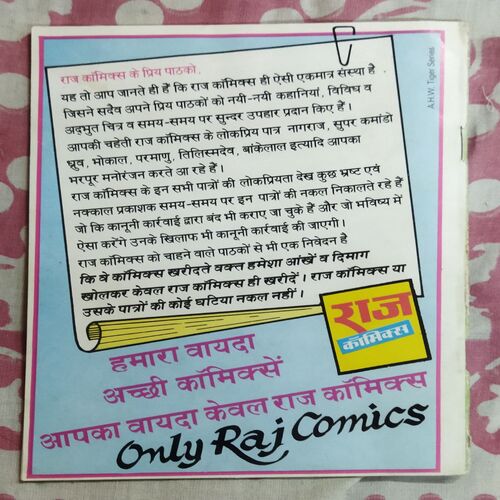 राज कॉमिक्स के प्रिय पाठको,
यह तो आप जानते ही हैं कि राज कॉमिक्स ही ऐसी एकमात्र संस्था है
जिसने सदैव अपने प्रिय पाठकों को नयी-नयी कहानियां, विविध व
अदभुत चित्र व समय-समय पर सुन्दर उपहार प्रदान किए हैं।
आपकी चहेती राज कॉमिक्स के लोकप्रिय पात्र नागराज, सुपर कमांडो
ध्रुव, भोकाल, परमाणु, तिलिस्मदेव, बांकेलाल इत्यादि आपका
भरपूर मनोरंजन करते आ रहे हैं।
राज कॉमिक्स के इन सभी पात्रों की लोकप्रियता देख कुछ भ्रष्ट एवं
नक्काल प्रकाशक समय-समय पर इन पात्रों की नकल निकालते रहे हैं
जो कि कानूनी कार्रवाई द्वारा बंद भी कराए जा चुके हैं और जो भविष्य में
ऐसा करेंगे उनके खिलाफ भी कानूनी कार्रवाई की जाएगी।
राज कॉमिक्स को चाहने वाले पाठकों से भी एक निवेदन है
कि वे कॉमिक्स खरीदते वक्त हमेशा आंखें व दिमाग
खोलकर केवल राज कॉमिक्स ही खरीदें। राज कॉमिक्स या
उसके पात्रों की कोई घटिया नकल नहीं।
राज
कॉमिक्स
हमारा वायदा
अच्छी कॉमिक्सें
आपका वायदा केवल राज कॉमिक्स
Only Raj Comics
A.H.W. Tiger Series